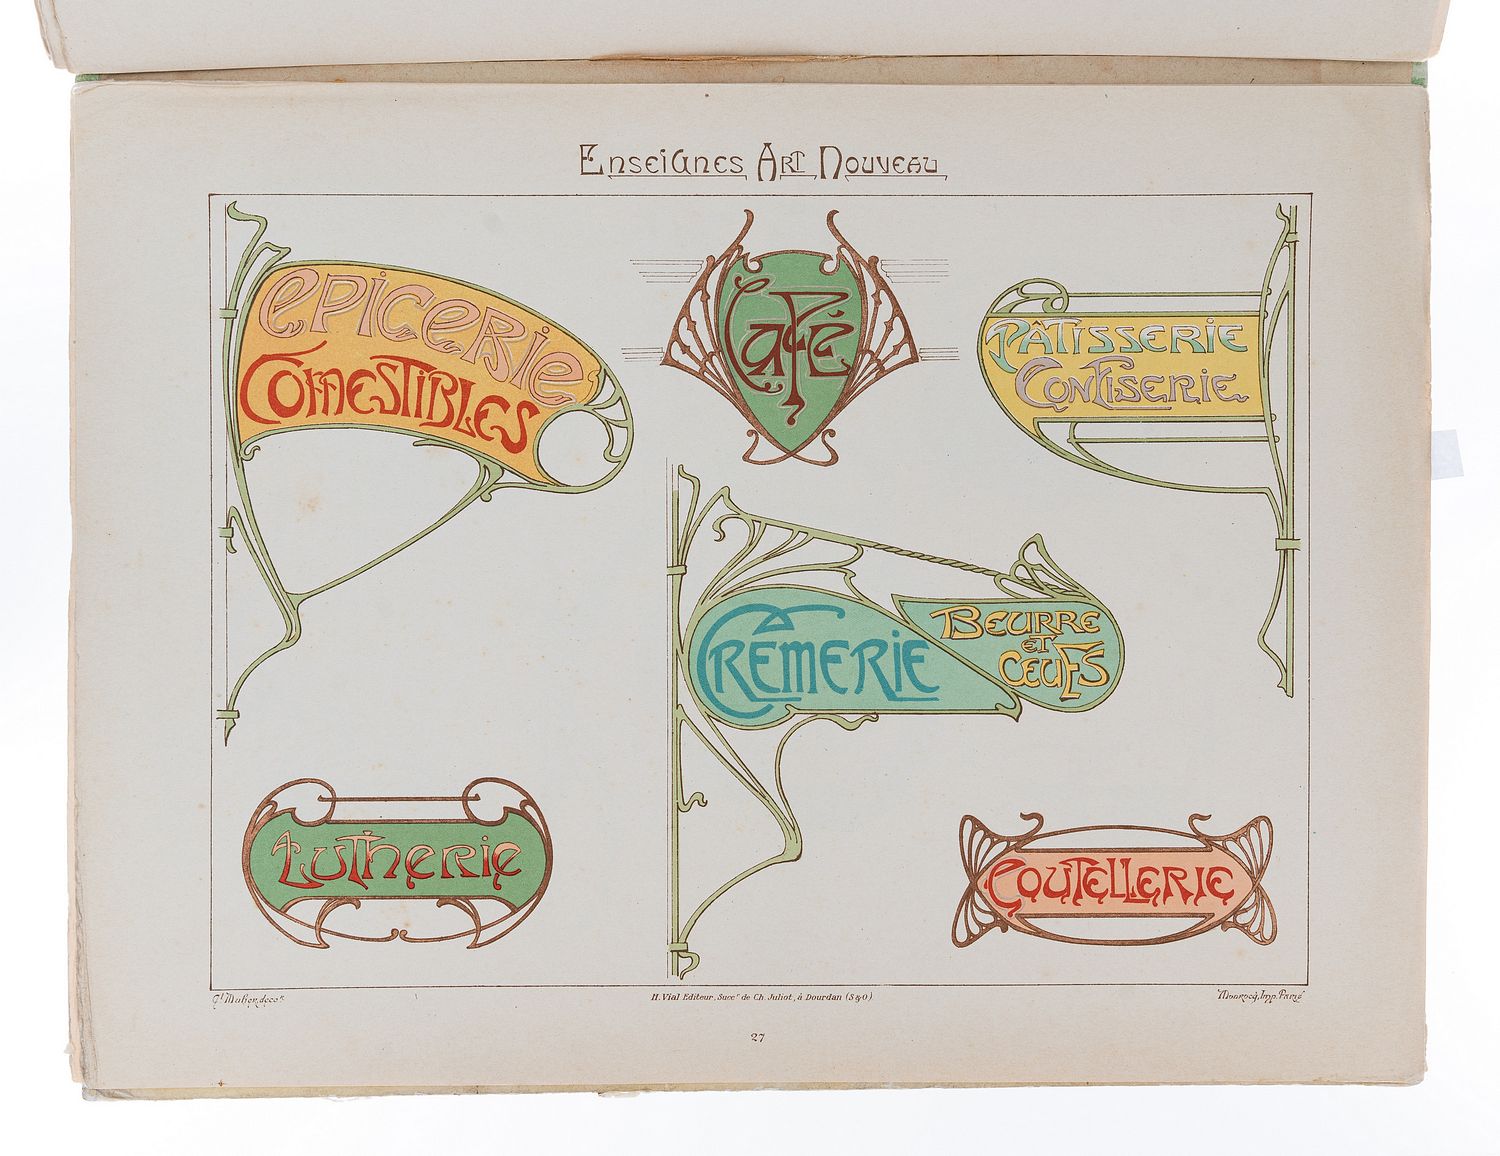 Enseignes Art Nouveau
Epicerie
Comestibles
Café
Pâtisserie
Confiserie
Crêmerie
Beurre
et
Œufs
Lutherie
Coutellerie
H. Vial Editeur, Succr de Ch. Juliot, à Dourdan (S & O)
Monrocq, Imp. Paris
27